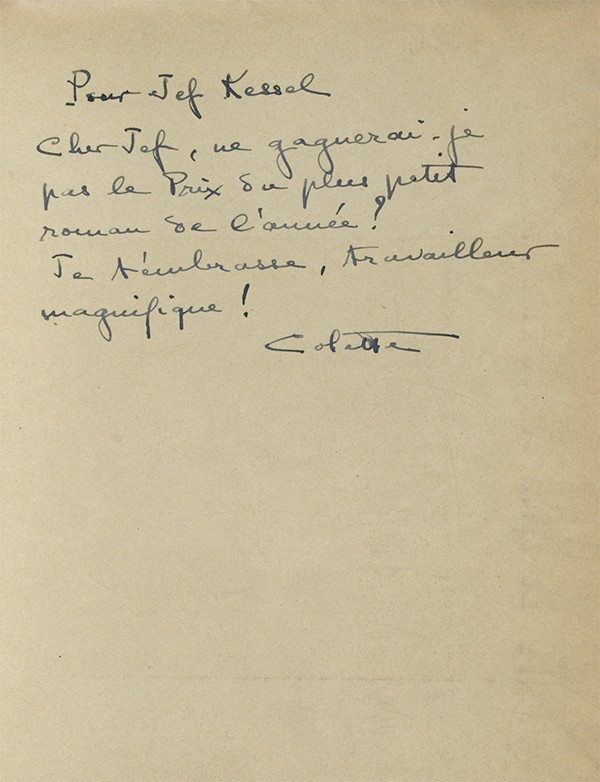 Pour Jef Kessel
Cher Jef, ne gagnerai-je
pas le Prix du plus petit
roman de l'année ?
Je t'embrasse, travailleur
magnifique !
Colette